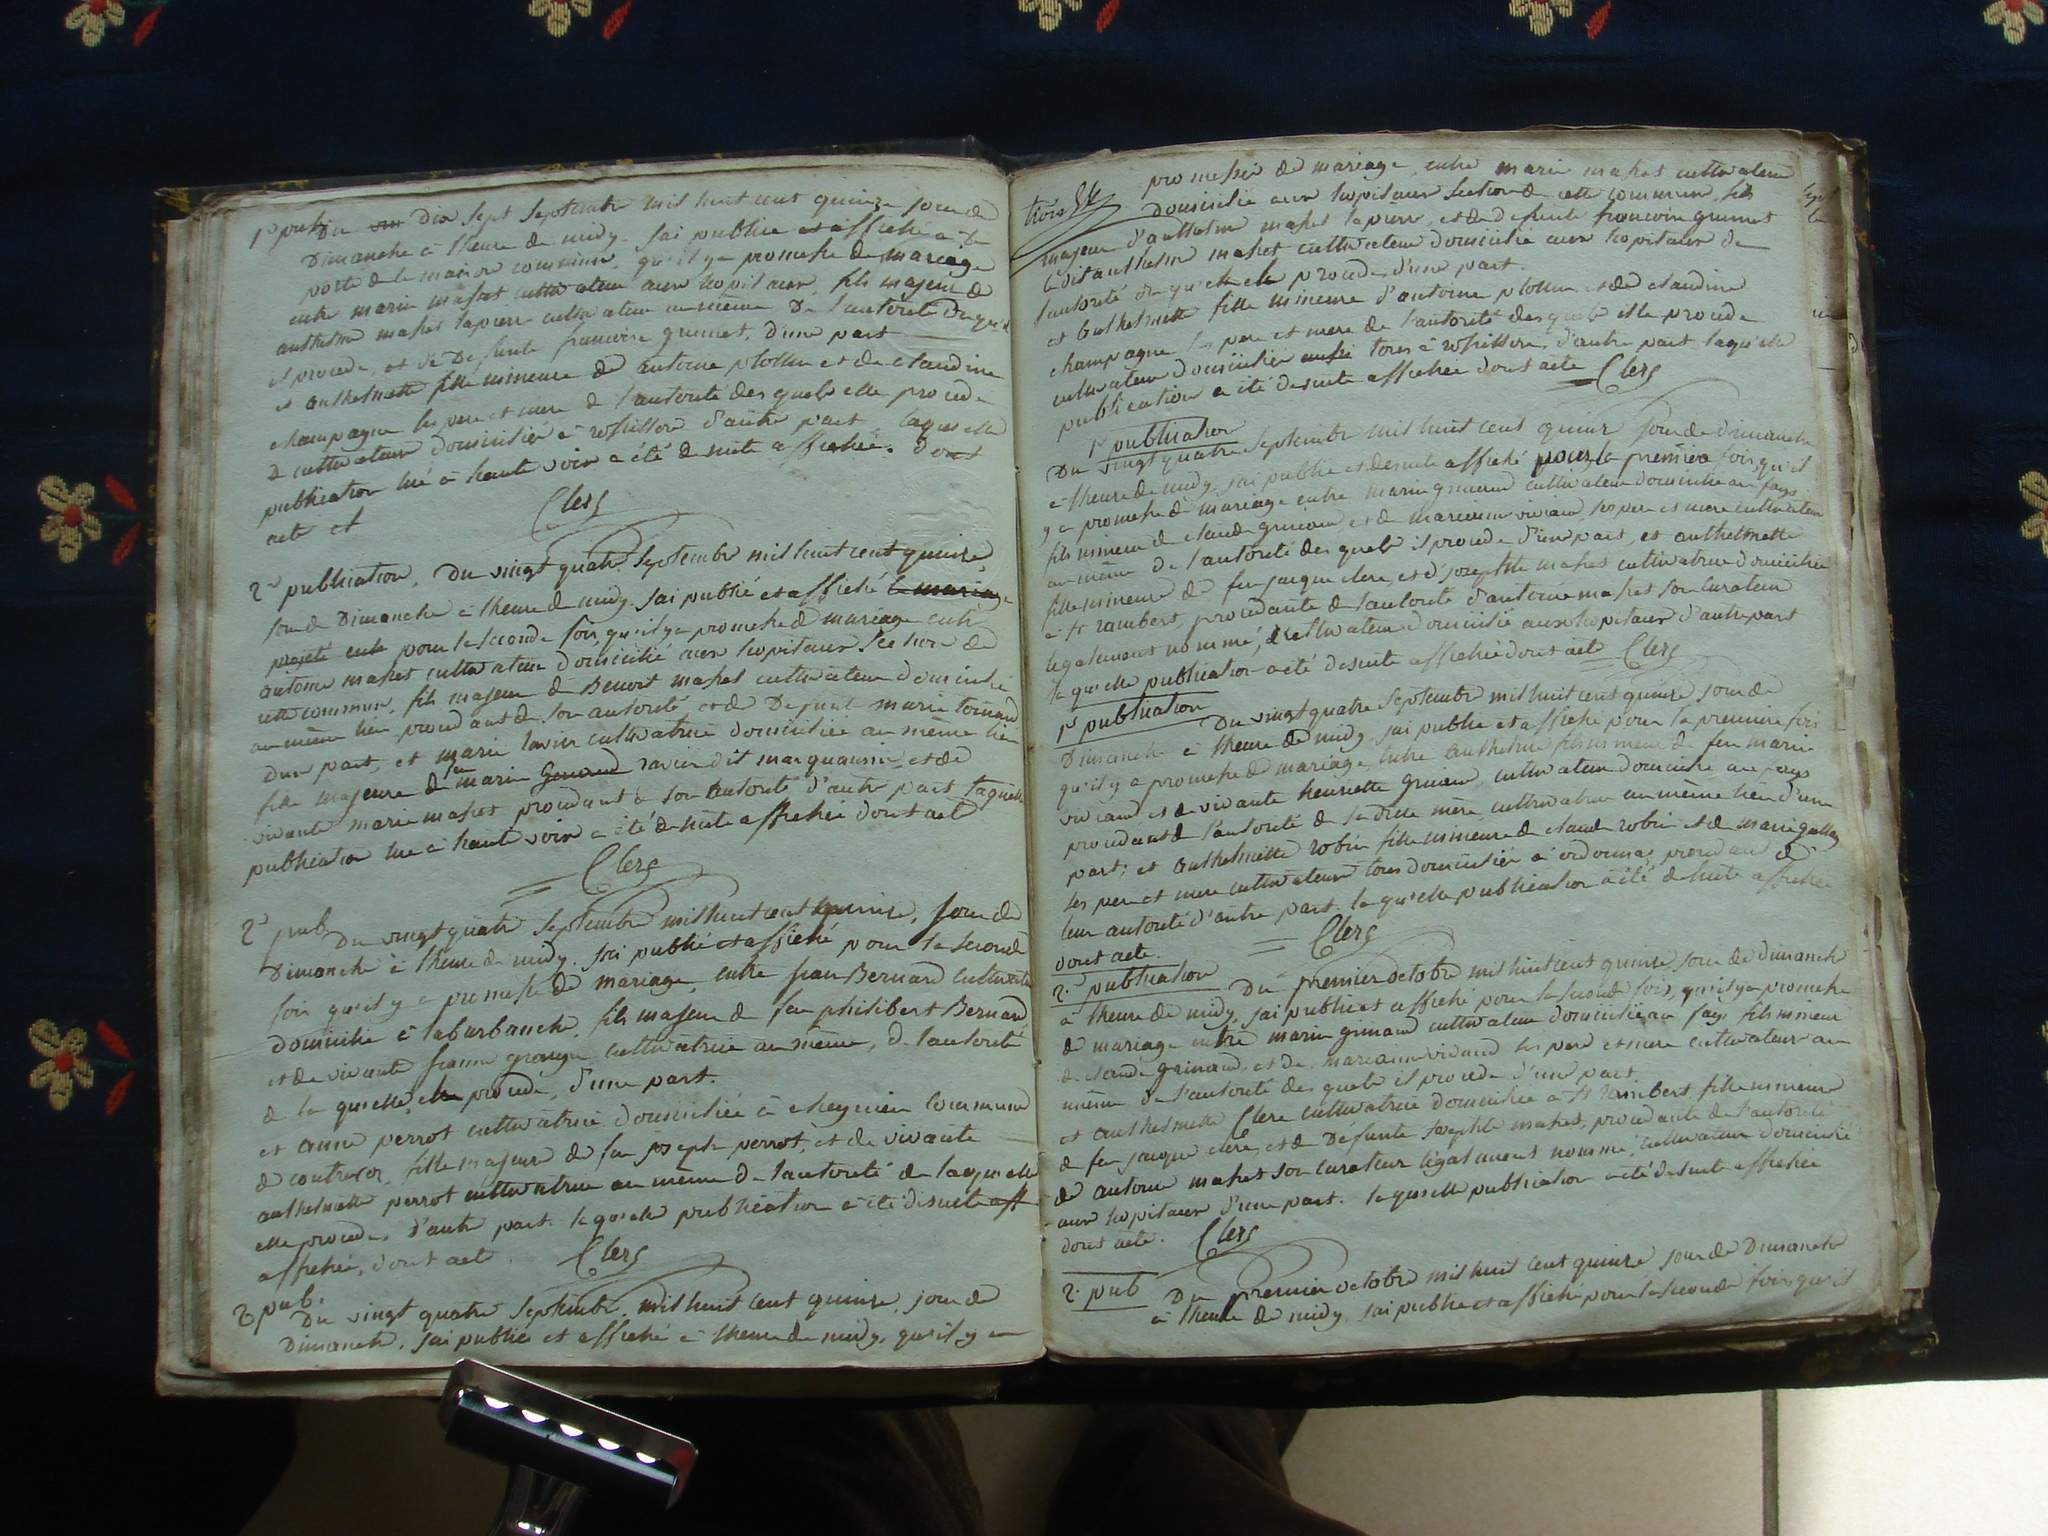 1e pub. Du dix sept septembre mil huit cent quinze jour de
Dimanche à l'heure de midy jai publié et affiché à la
porte de la maison commune, qu'il y a promesse de mariage
entre marin maket cultivateur aux hopitaux, fils majeur de
anthelme maket lapierre cultivateur au même De l'autorité duquel
il procede, et de Defunte francoise grumet, d'une part
et anthelmette fille mineure de antoine plollu et de claudine
champagne les pere et mere de l'autorité desquels elle procede
et cultivateur domiciliés à rossillon d'autre part laquelle
publication lue à haute voix a été de suite affichée. dont
acte et Clerc
2e publication, Du vingt quatre septembre mil huit cent quinze,
jour de Dimanche à l'heure de midy. jai publié et affiché le mariage
projeté entre pour la seconde fois, qu'il y a promesse de mariage entre
antoine maket cultivateur domicilié aux hopitaux section de
cette commune, fils majeur de Benoit maket cultivateur domicilié
au même lieu procedant de son autorité et de Defunte marie
d'une part, et marie ravier cultivatrice domiciliée au même lieu
fille majeure de feu marin ravier dit marquaisin, et de
vivante marie maket procedant de son autorité d'autre part laquelle
publication lue à haute voix a été de suite affichée dont acte
Clerc
2e pub. Du vingt quatre septembre mil huit cent quinze, jour de
Dimanche à l'heure de midy. jai publié et affiché pour la seconde
fois qu'il y a promesse de mariage, entre jean Bernard cultivateur
domicilié à laburbanche, fils majeur de feu philibert Bernard
et de vivante jeanne grange cultivatrice au même, de l'autorité
de la quelle, il procede, d'une part.
et anne perrot cultivatrice domiciliée à cheynieu commune
de contrevoz, fille majeure de feu joseph perrot, et de vivante
anthelmette perrot cultivatrice au même de l'autorité de laquelle
elle procede, d'autre part. la quelle publication a été de suite aff
affichée, dont acte. Clerc
2e pub. Du vingt quatre septembre, mil huit cent quinze, jour de
Dimanche, jai publié et affiché à l'heure de midy, qu'il y a
promesse de mariage entre marin maket cultivateur
trois domicilié aux hopitaux section de cette commune, fils
majeur d'anthelme maket lapierre, et de defunte francoise grumet
le dit anthelme maket cultivateur domicilié aux hopitaux de
l'autorité du quel il procede, d'une part.
et Anthelmette fille mineure d'antoine plollu et de claudine
champagne les pere et mere de l'autorité desquels elle procede
cultivateur domiciliés aussi tous à rossillon, d'autre part laquelle
publication a été de suite affichée dont acte Clerc
1e publication
Du vingt quatre septembre mil huit cent quinze jour de dimanche
à l'heure de midy. jai publié et de suite affiché pour la première fois, qu'il
y a promesse de mariage entre marin grinand cultivateur domicilié au fays
fils mineur de claude grinand, et de marianne viviand, ses pere et mere cultivateur
au même De l'autorité des quels il procede d'une part, et anthelmette
fille mineure de feu jacque clerc, et d'josephte maket cultivatrice domiciliée
à st rambert, procedante de l'autorité d'antoine maket son curateur
légalement nommé, cultivateur domicilié aux hopitaux d'autre part
la quelle publication a été de suite affichée dont acte Clerc
1e publication Du vingt quatre septembre mil huit cent quinze, jour de
Dimanche à l'heure de midy. jai publié et affiché pour la premiere fois
qu'il y a promesse de mariage entre anthelme fils mineur de feu marin
viviand et de vivante henriette grinand, cultivateur domicilié au fays
procedant de l'autorité de sa dite mère cultivatrice au même lieu d'une
part; et anthelmette robin fille mineure de claude robin et de marie
ses pere et mere cultivateurs tous domiciliés à ordonnaz procedant de
leur autorité d'autre part. la quelle publication a été de suite affichée
dont acte. Clerc
2e publication Du premier octobre mil huit cent quinze jour de dimanche
à l'heure de midy, jai publié et affiché pour la seconde fois, qu'il y a promesse
de mariage entre marin grinand cultivateur domicilié au fays fils mineur
de claude grinand, et de marianne viviand ses pere et mere cultivateur au
même de l'autorité des quels il procede d'une part.
et anthelmette Clerc cultivatrice domiciliée à st rambert, fille mineure
de feu jacque clerc, et de Défunte josephte maket, procedante de l'autorité
de antoine maket son curateur légalement nommé, cultivateur domicilié
aux hopitaux d'une part. la quelle publication a été de suite affichée
dont acte. Clerc
2e pub Du premier octobre mil huit cent quinze jour de Dimanche
à l'heure de midy, jai publié et affiché pour la seconde fois, qu'il